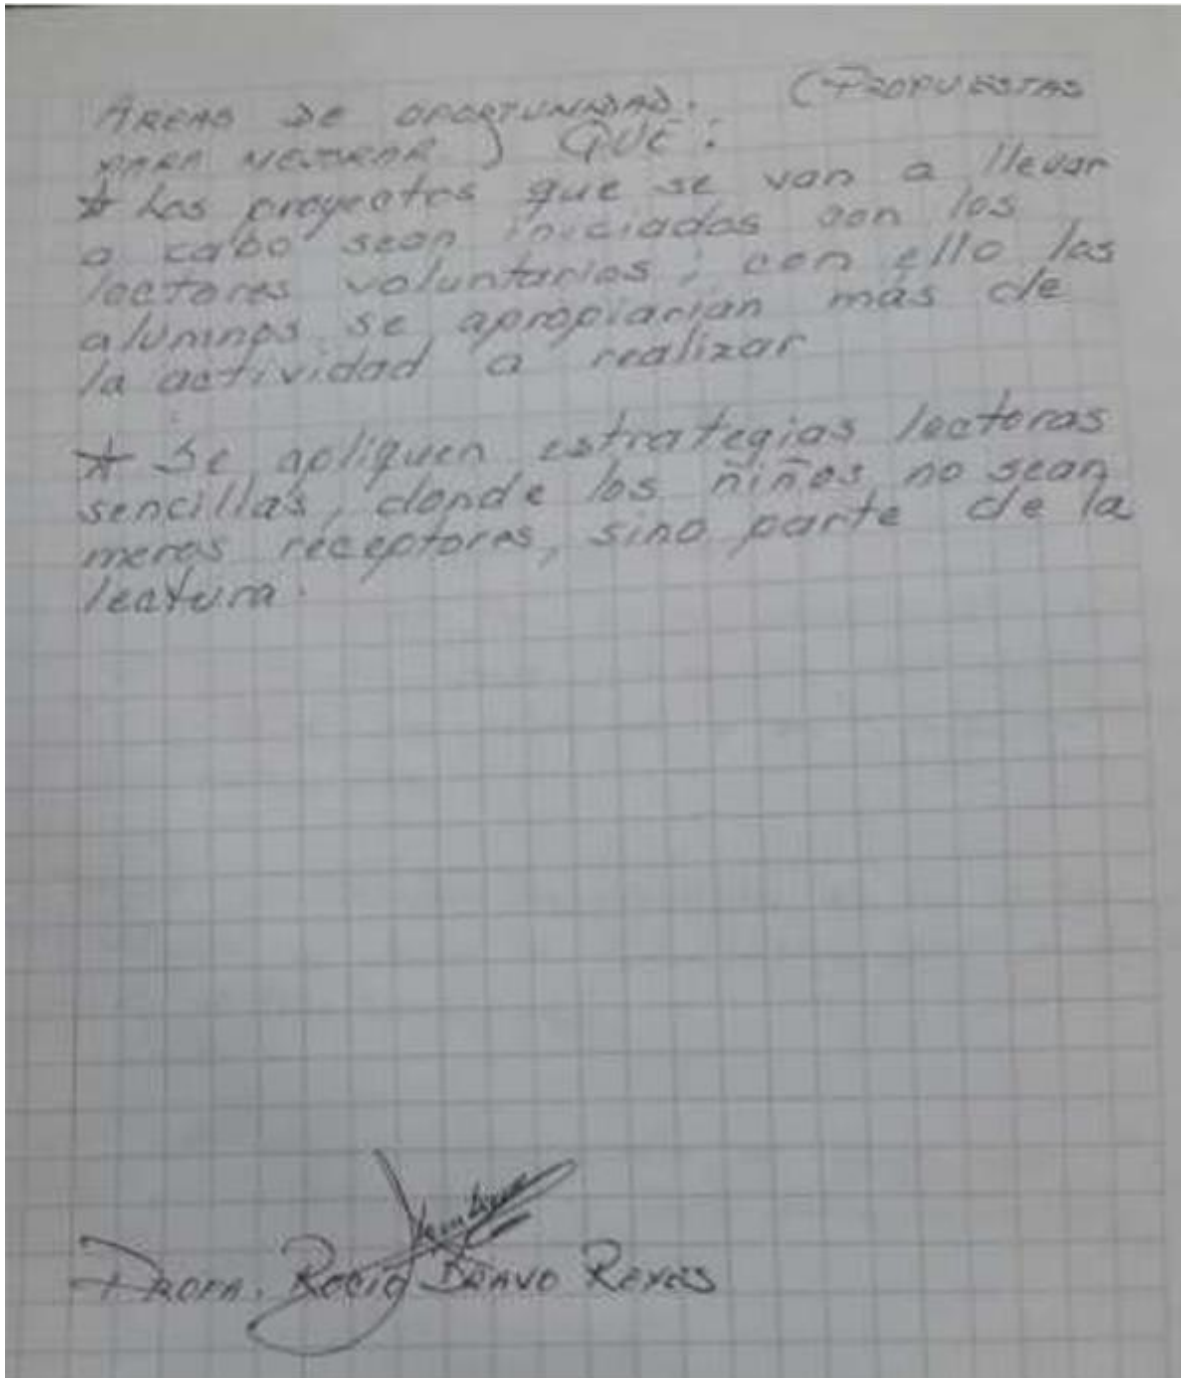 AREAS DE OPORTUNIDAD. (PROPUESTAS
PARA MEJORAR) QUE:
* Los proyectos que se van a llevar
a cabo sean iniciados con los
lectores voluntarios; con ello los
alumnos se apropiarían más de
la actividad a realizar
* Se apliquen estrategias lectoras
sencillas, donde los niños no sean
meros receptores, sino parte de la
lectura.
PROFA. ROCIO BRAVO REYES